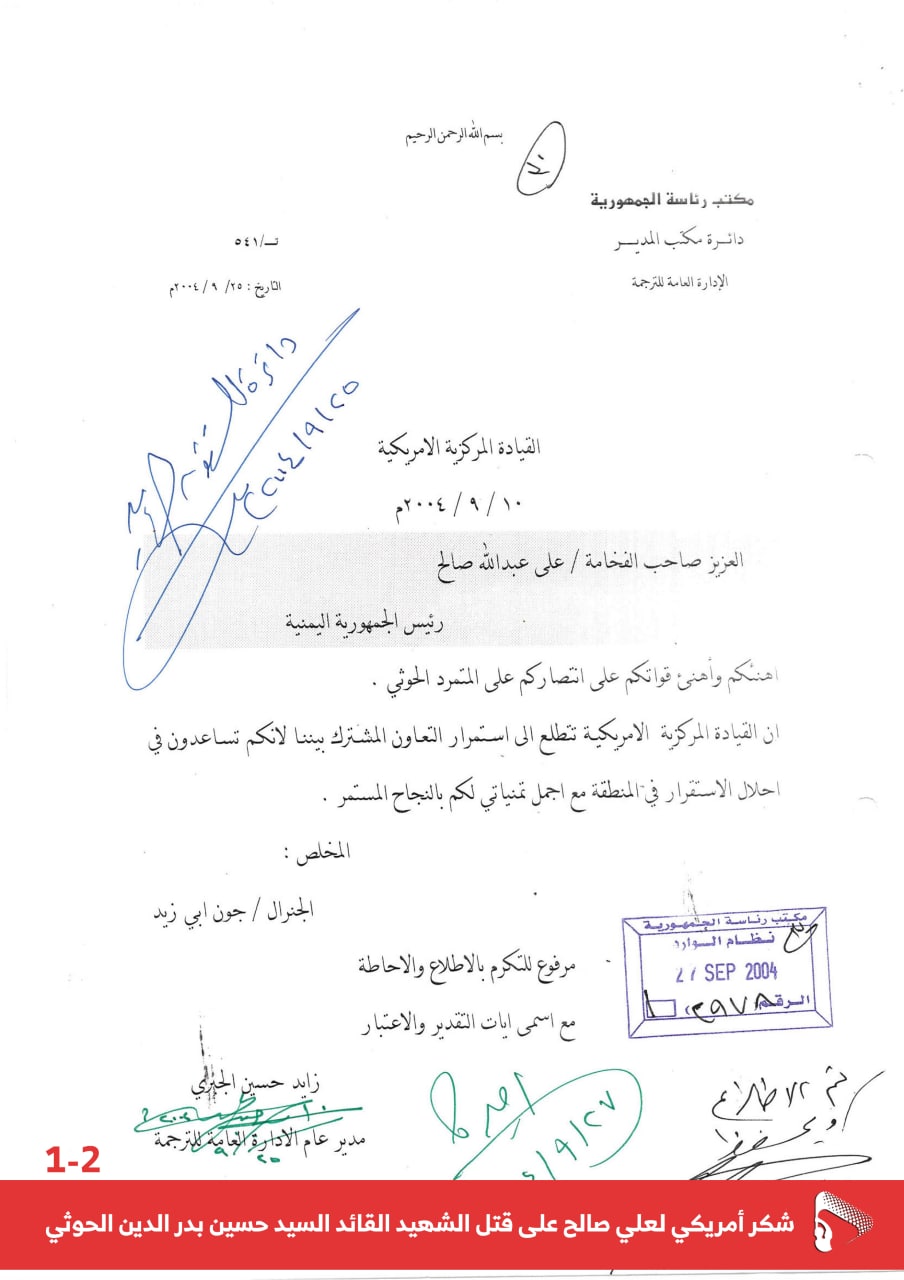 بسم الله الرحمن الرحيم
مكتب رئاسة الجمهورية
دائرة مكتب المدير
الإدارة العامة للترجمة
تـ/٥٤١
التاريخ : ٢٥/ ٩ / ٢٠٠٤م
٢٠٠٤/٩/٢٥
القيادة المركزية الامريكية
١٠ / ٩ / ٢٠٠٤م
العزيز صاحب الفخامة / علي عبدالله صالح
رئيس الجمهورية اليمنية
اهنئكم وأهنئ قواتكم على انتصاركم على المتمرد الحوثي .
ان القيادة المركزية الامريكية تتطلع الى استمرار التعاون المشترك بيننا لانكم تساعدون في
احلال الاستقرار في المنطقة مع اجمل تمنياتي لكم بالنجاح المستمر .
المخلص :
الجنرال / جون ابي زيد
مكتب رئاسة الجمهورية
نظام الوارد
27 SEP 2004
الرقم
مرفوع للتكرم بالاطلاع والاحاطة
مع اسمى ايات التقدير والاعتبار
تم الاطلاع
ويحفظ
زايد حسين الجبري
مدير عام الادارة العامة للترجمة
1-2
شكر أمريكي لعلي صالح على قتل الشهيد القائد السيد حسين بدر الدين الحوثي